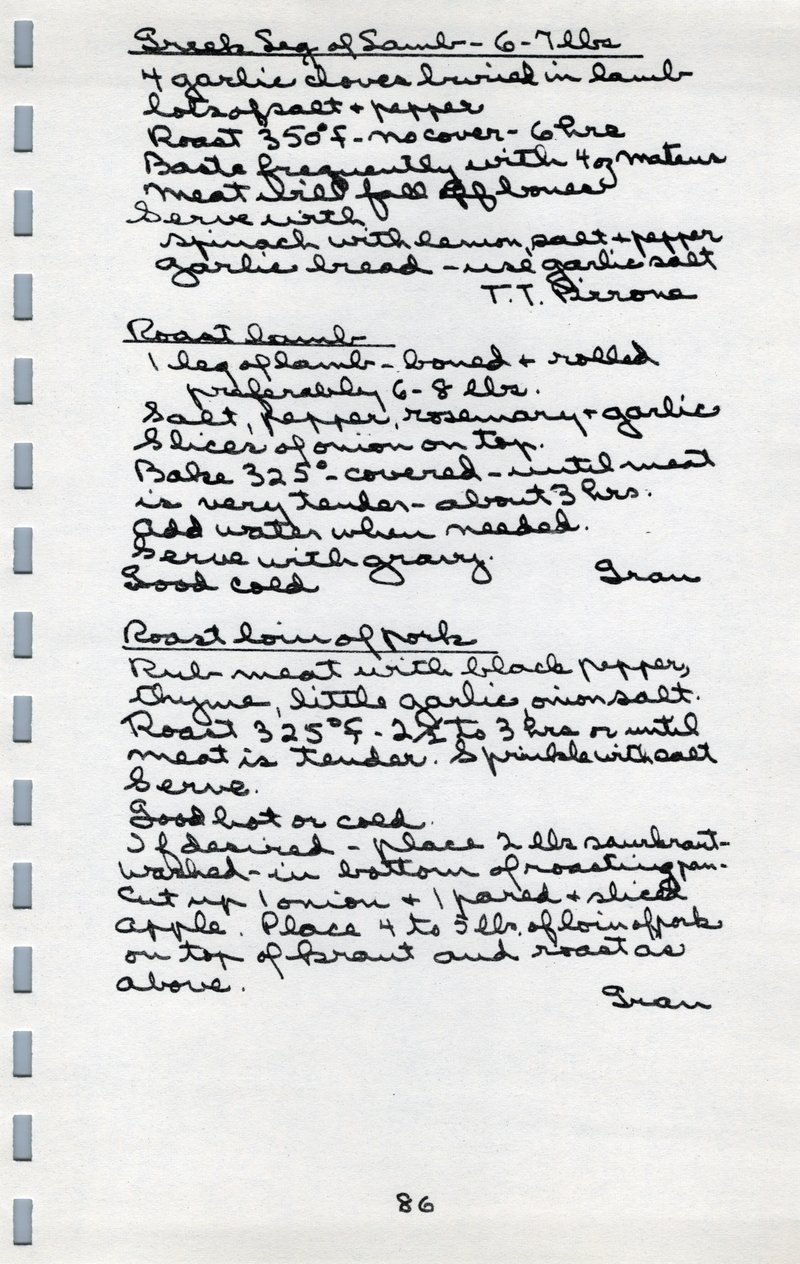 Greek Leg of Lamb - 6-7 lbs
4 garlic cloves buried in lamb
lots of salt + pepper
Roast 350°F - no cover - 6 hrs
Baste frequently with 4 oz Mateus
Meat will fall off bones
Serve with
spinach with lemon, salt + pepper
garlic bread - use garlic salt
T.T. Pirrone
Roast Lamb
1 leg of lamb - boned + rolled
preferably 6-8 lbs.
Salt, pepper, rosemary + garlic
Slices of onion on top.
Bake 325° - covered - until meat
is very tender - about 3 hrs.
Add water when needed.
Serve with gravy.
Good cold
Gran
Roast Loin of Pork
Rub meat with black pepper,
thyme, little garlic, onion salt.
Roast 325°F - 2½ to 3 hrs or until
meat is tender. Sprinkle with salt
Serve.
Good hot or cold.
If desired - place 2 lbs saurkraut -
washed - in bottom of roasting pan.
Cut up 1 onion + 1 pared + sliced
apple. Place 4 to 5 lbs. of loin of pork
on top of kraut and roast as
above.
Gran
86